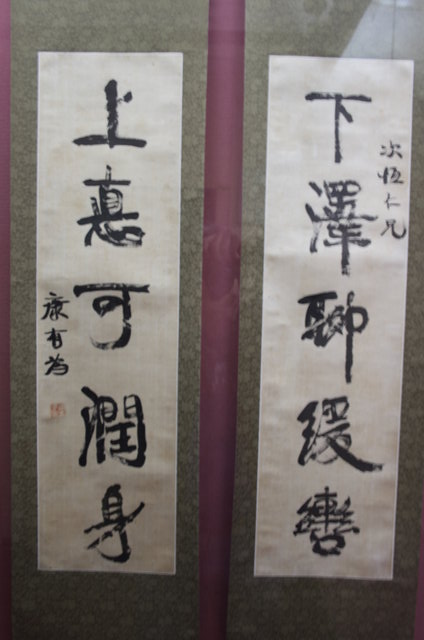 次恆仁兄
下澤聊緩轡
上悳可潤身
康有為